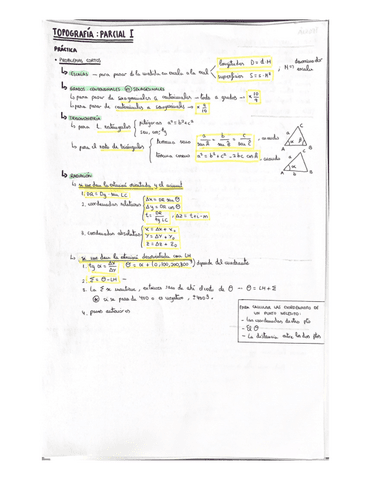 TOPOGRAFÍA: PARCIAL I
PRÁCTICA
• PROBLEMAS CORTOS
↳ ESCALAS — para pasar de la medida en escala a la real
longitudes D = d·M
superficies S = s·M²
M(=) denominador escala
↳ GRADOS CENTESIMALES Y SEXAGESIMALES
↳ para pasar de sexagesimales a centesimales — todo a grados — × 10/9
↳ para pasar de centesimales a sexagesimales — × 9/10
↳ TRIGONOMETRÍA
↳ para △ rectángulos
pitágoras a² = b² + c²
sen, cos, tg
↳ para el resto de triángulos
teorema seno a/sen A = b/sen B = c/sen C, cuando
teorema coseno a² = b² + c² - 2bc cos A, cuando
↳ RADIACIÓN
↳ si nos dan la estación orientada y el acimut
1. DR = Dg · sen LC
2. coordenadas relativas
Δx = DR sen θ
Δy = DR cos θ
t = DR/tg LC, Δz = t + i - m
3. coordenadas absolutas
X = Δx + X₀
Y = Δy + Y₀
Z = Δz + Z₀
↳ si nos dan la estación desorientada con LH
1. tg α = Δx/Δy θ = α + (0, 100, 200, 300) depende del cuadrante
2. Σ = θ - LH
3. La Σ se mantiene, entonces de ahí θ — θ = LH + Σ
si se pasa de 400 o es negativo, ± 400
4. pasos anteriores
PARA CALCULAR LAS COORDENADAS DE UN PUNTO NECESITO:
- Las coordenadas de otro pto
- El θ
- La distancia entre los dos ptos